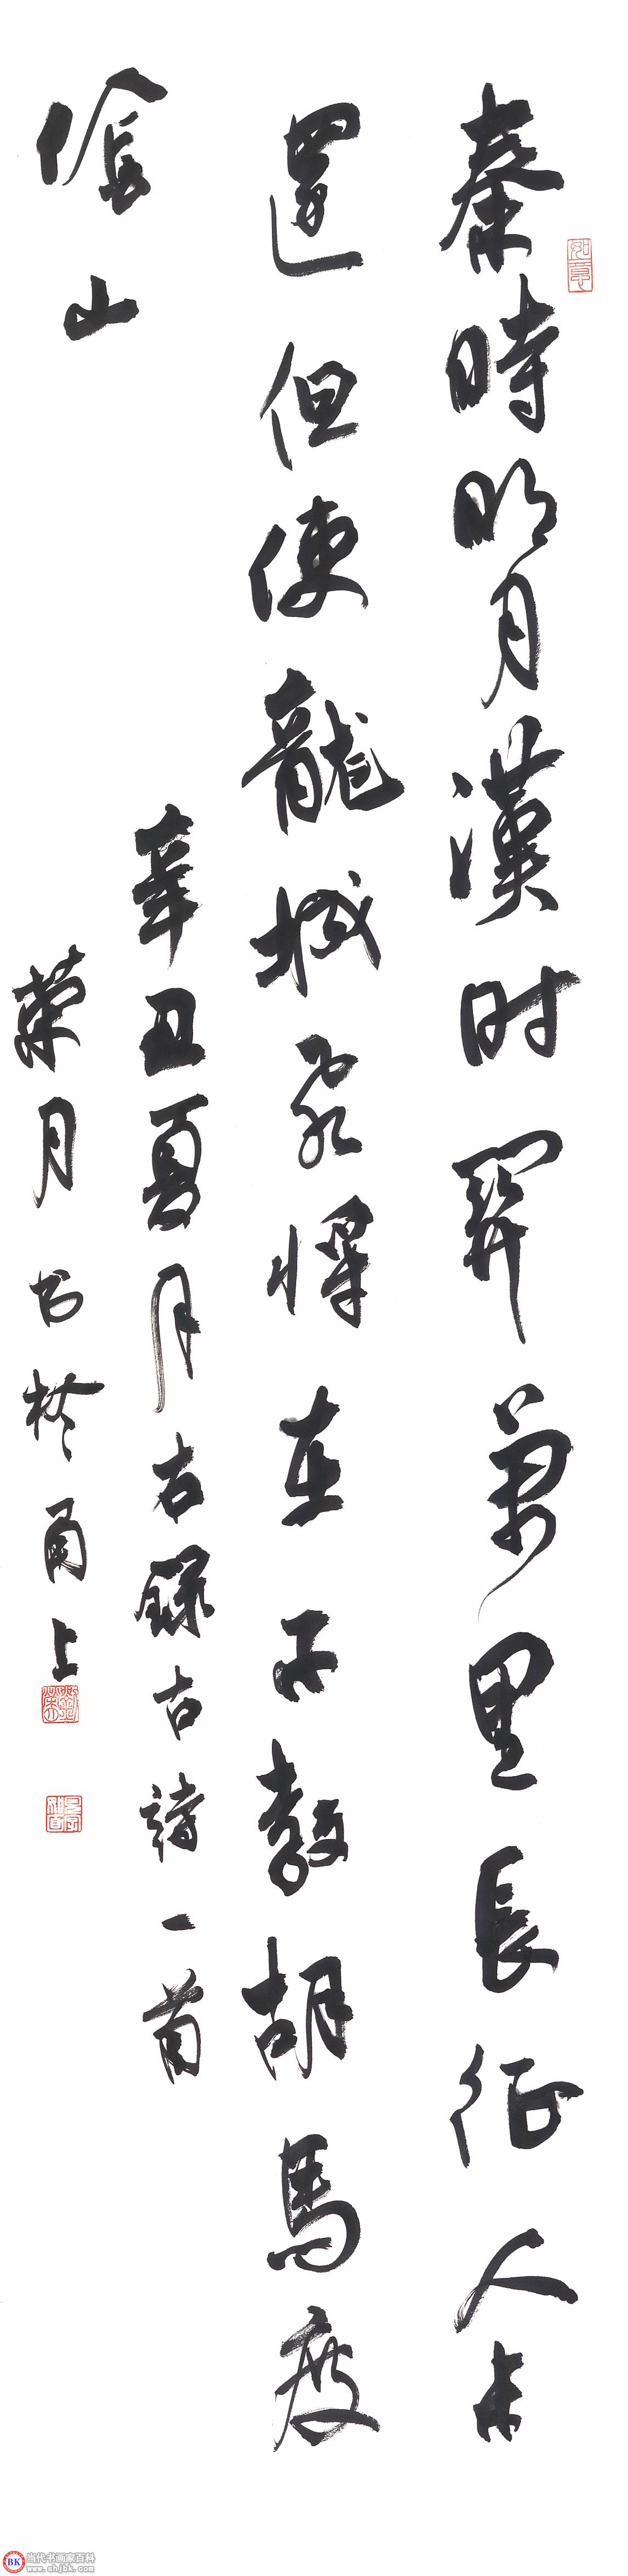 秦時明月漢时關萬里長征人未
還但使龍城飛將在不教胡馬度
陰山
辛丑夏月右錄古詩一首
榮月书於甬上
如意
BK
当代书画家百科
www.chjbk.com